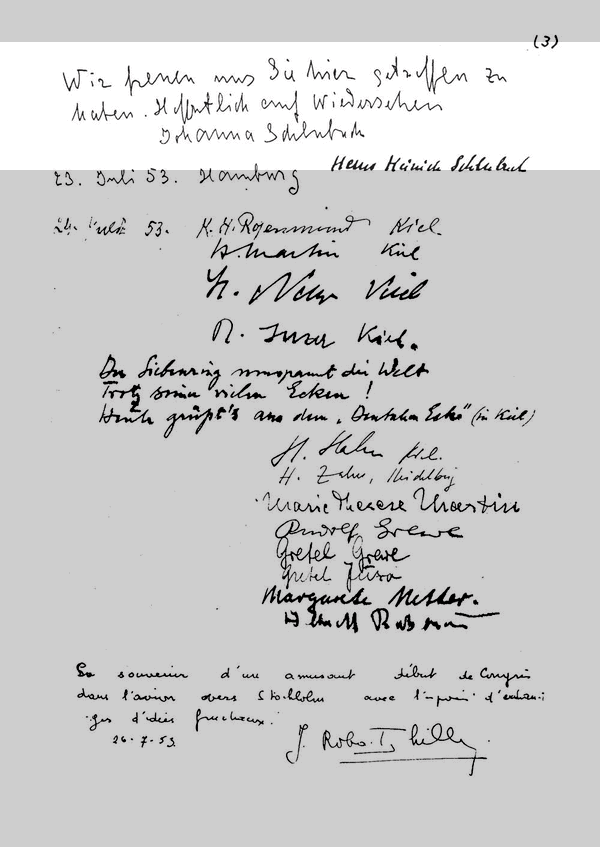 (3)
Wir freuen uns Sie hier getroffen zu
haben. Hoffentlich auf Wiedersehen
Johanna Schlubach
Hans Heinrich Schlubach
23. Juli 53. Hamburg
24. Juli 53. K. H. Rosenmund Kiel.
H. Martin Kiel
Kiel
R. Kiel.
Der Siebenring umspannt die Welt
Trotz seiner vielen Ecken!
Heute grüßt's aus dem "Deutschen Eck" (in Kiel)
H. Hahn Kiel.
H. Zahn, Heidelberg
Marie Therese Martin
Rudolf Grewe
Gretel Grewe
Gretel
Margarete
En souvenir d'un amusant début de Congrès
dans l'avion vers Stockholm avec l'espoir d'échan-
ges d'idées fructueux.
26-7-53
J.